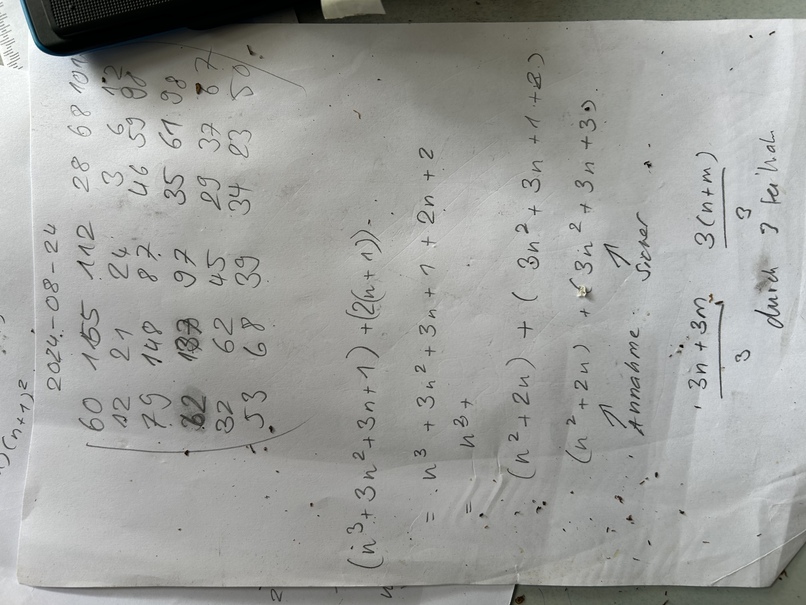 2024-08-24
60 155 112 28 68 101
12 21 24 3 6 12
79 148 87 46 59 98
62 137 97 35 61 98
32 62 45 29 37 67
53 68 39 34 23 50
(n³+3n²+3n+1)+(2(n+1))
= n³+3n²+3n+1+2n+2
= n³+
(n²+2n) + (3n²+3n+1+2)
(n²+2n) + (3n²+3n+3)
↑ ↑
Annahme Sicher
3n+3m 3(n+m)
3 3
durch 3
)(n+1)²